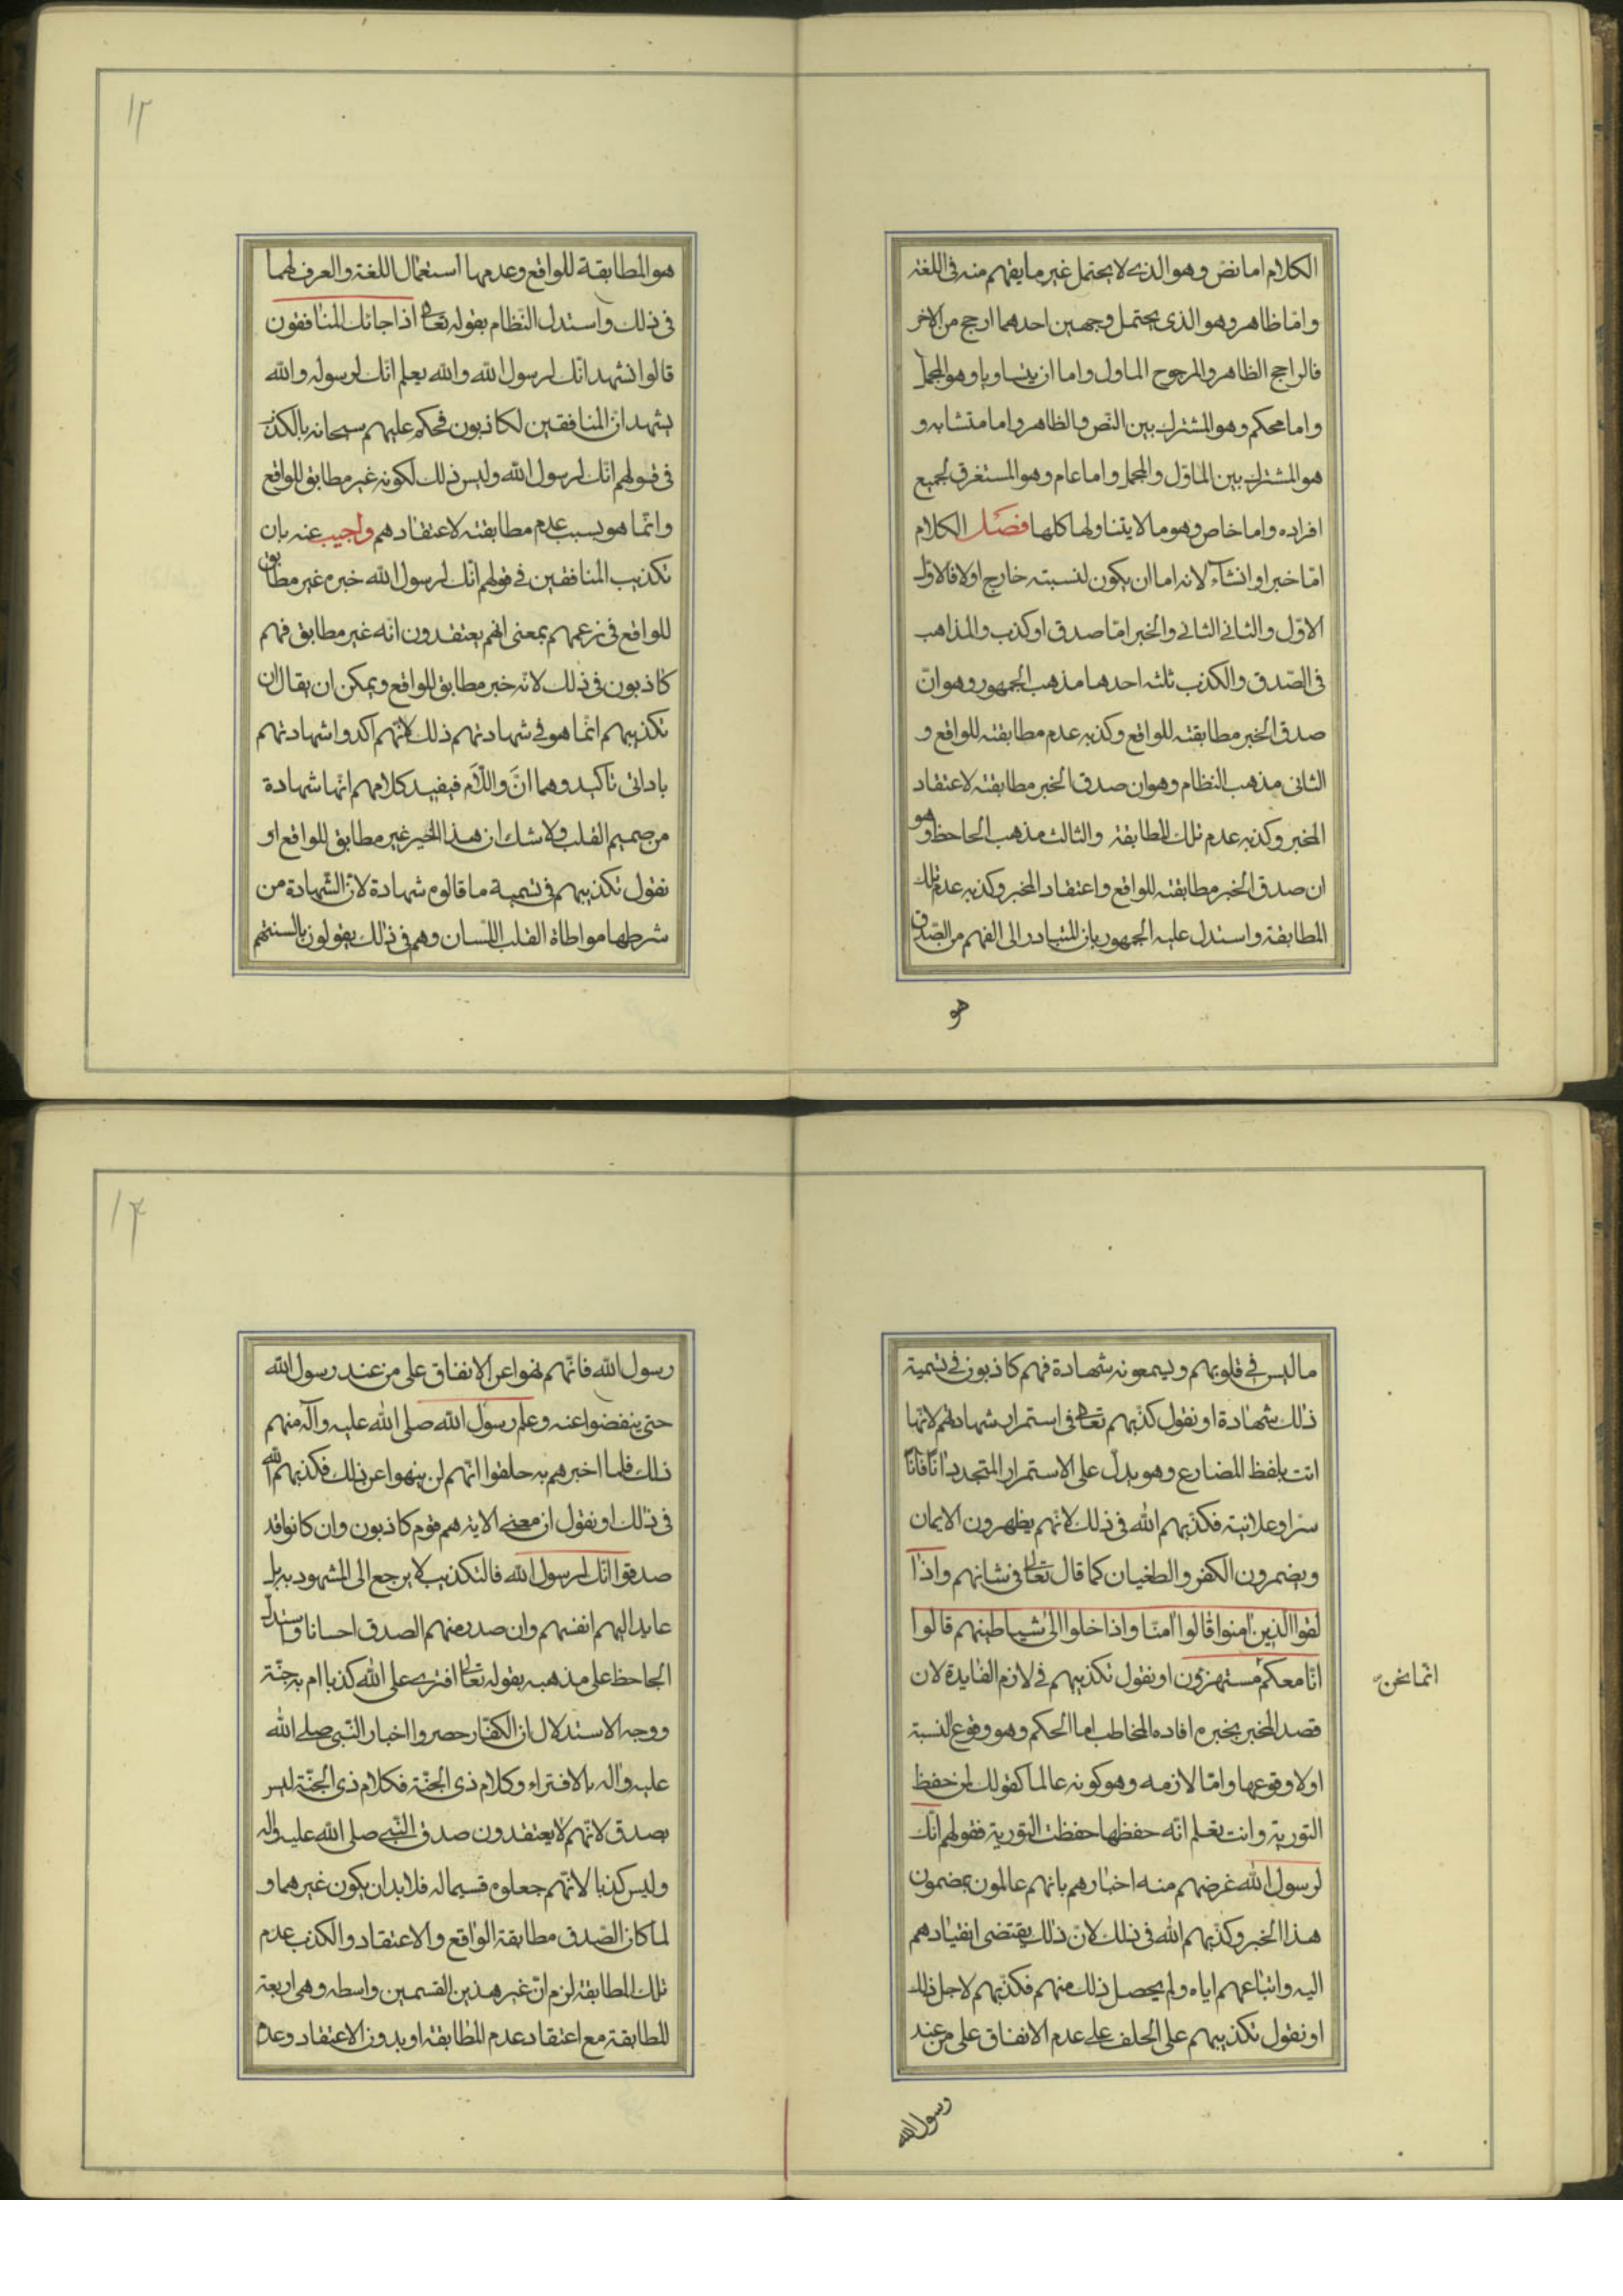 الكلام اما نص وهو الذى لا يحتمل غير ما يفهم منه فى اللغة
واما ظاهر وهو الذى يحتمل وجهين احدهما ارجح من الاخر
فالراجح الظاهر والمرجوح الماول واما ان يتساويا وهو المجمل
واما محكم وهو المشترك بين النص والظاهر واما متشابه و
هو المشترك بين الماوّل والمجمل واما عام وهو المستغرق لجميع
افراده واما خاص وهو ما لا يتناولها كلها فصل الكلام
امّا خبر او انشاء لانه اما ان يكون لنسبته خارج اولا فالاوّل
الاوّل والثانى الثانى والخبر امّا صدق او كذب والمذاهب
فى الصّدق والكذب ثلثه احدها مذهب الجمهور وهو انّ
صدق الخبر مطابقته للواقع وكذبه عدم مطابقته للواقع و
الثانى مذهب النظام وهو ان صدق الخبر مطابقته لاعتقاد
المخبر وكذبه عدم تلك المطابقة والثالث مذهب الجاحظ وهو
ان صدق الخبر مطابقته للواقع واعتقاد المخبر وكذبه عدم تلك
المطابقة واستدل عليه الجمهور بان المتبادر الى الفهم من الصّدق
هو
١٢
هو المطابقة للواقع وعدمها استعمال اللغة والعرف لهما
فى ذلك واستدل النّظام بقوله تعالى اذا جائك المنافقون
قالوا نشهد انّك لرسول الله والله يعلم انّك لرسوله والله
يشهد انّ المنافقين لكاذبون فحكم عليهم سبحانه بالكذب
فى قولهم انّك لرسول الله وليس ذلك لكونه غير مطابق للواقع
وانّما هو بسبب عدم مطابقته لاعتقادهم واجيب عنه بان
تكذيب المنافقين فى قولهم انّك لرسول الله خبره غير مطابق
للواقع فى زعمهم بمعنى انهم يعتقدون انّه غير مطابق فهم
كاذبون فى ذلك لانّه خبر مطابق للواقع ويمكن ان يقال ان
تكذيبهم انّما هو فى شهادتهم ذلك لانّهم اكدوا شهادتهم
باداتى تاكيد وهما انَّ واللاّم فيفيد كلامهم انّها شهادة
من صميم القلب ولا شك ان هذا الخبر غير مطابق للواقع او
نقول تكذيبهم فى تسمية ما قالوه شهادة لانّ الشّهادة من
شرطها مواطاة القلب اللسان وهم فى ذلك يقولون بالسنتهم
ما ليس فى قلوبهم ويسمعونه شهادة فهم كاذبون فى تسمية
ذلك شهادة او نقول كذّبهم تعالى فى استمرار شهادتهم لانّها
اتت بلفظ المضارع وهو يدلّ على الاستمرار المتجدد آنًا فآنًا
سرّا وعلانية فكذّبهم الله فى ذلك لانّهم يظهرون الايمان
ويضمرون الكفر والطغيان كما قال تعالى فى شانهم واذا
لقوا الذين امنوا قالوا امنّا واذا خلوا الى شياطينهم قالوا
انّا معكم مستهزؤن او نقول تكذيبهم فى لازم الفايدة لان
انّما نحن
قصد المخبر بخبره افاده المخاطب اما الحكم وهو وقوع النسبة
او لا وقوعها وامّا لازمه وهو كونه عالما كقولك لمن حفظ
التورية وانت تعلم انّه حفظها حفظت التورية فقولهم انّك
لرسول الله غرضهم منه اخبارهم بانهم عالمون بمضمون
هذا الخبر وكذّبهم الله فى ذلك لانّ ذلك يقتضى انقيادهم
اليه واتباعهم اياه ولم يحصل ذلك منهم فكذّبهم لاجل ذلك
او نقول تكذيبهم على الحلف على عدم الانفاق على من عند
رسول الله
١٣
رسول الله فانّهم نهوا عن الانفاق على من عند رسول الله
حتى ينفضوا عنه وعلم رسول الله صلى الله عليه وآله منهم
ذلك فلما اخبرهم به حلفوا انّهم لن ينهوا عن ذلك فكذبهم الله
فى ذلك او نقول ان معنى الاية هم قوم كاذبون وان كانوا قد
صدقوا انّك لرسول الله فالتكذيب لا يرجع الى المشهود به بل
عايد اليهم انفسهم وان صدر منهم الصدق احسانا واستدل
الجاحظ على مذهبه بقوله تعالى افترى على الله كذبا ام به جنّة
ووجه الاستدلال ان الكفّار حصروا اخبار النّبى صلى الله
عليه واله بالافتراء وكلام ذى الجنّة فكلام ذى الجنّة ليس
بصدق لانّهم لا يعتقدون صدق النّبى صلى الله عليه واله
وليس كذبا لانّهم جعلوه قسيما له فلا بد ان يكون غيرهما و
لما كان الصّدق مطابقة الواقع والاعتقاد والكذب عدم
تلك المطابقة لزم انّ غير هذين القسمين واسطه وهى اربعة
المطابقة مع اعتقاد عدم المطابقة او بدون الاعتقاد وعدم